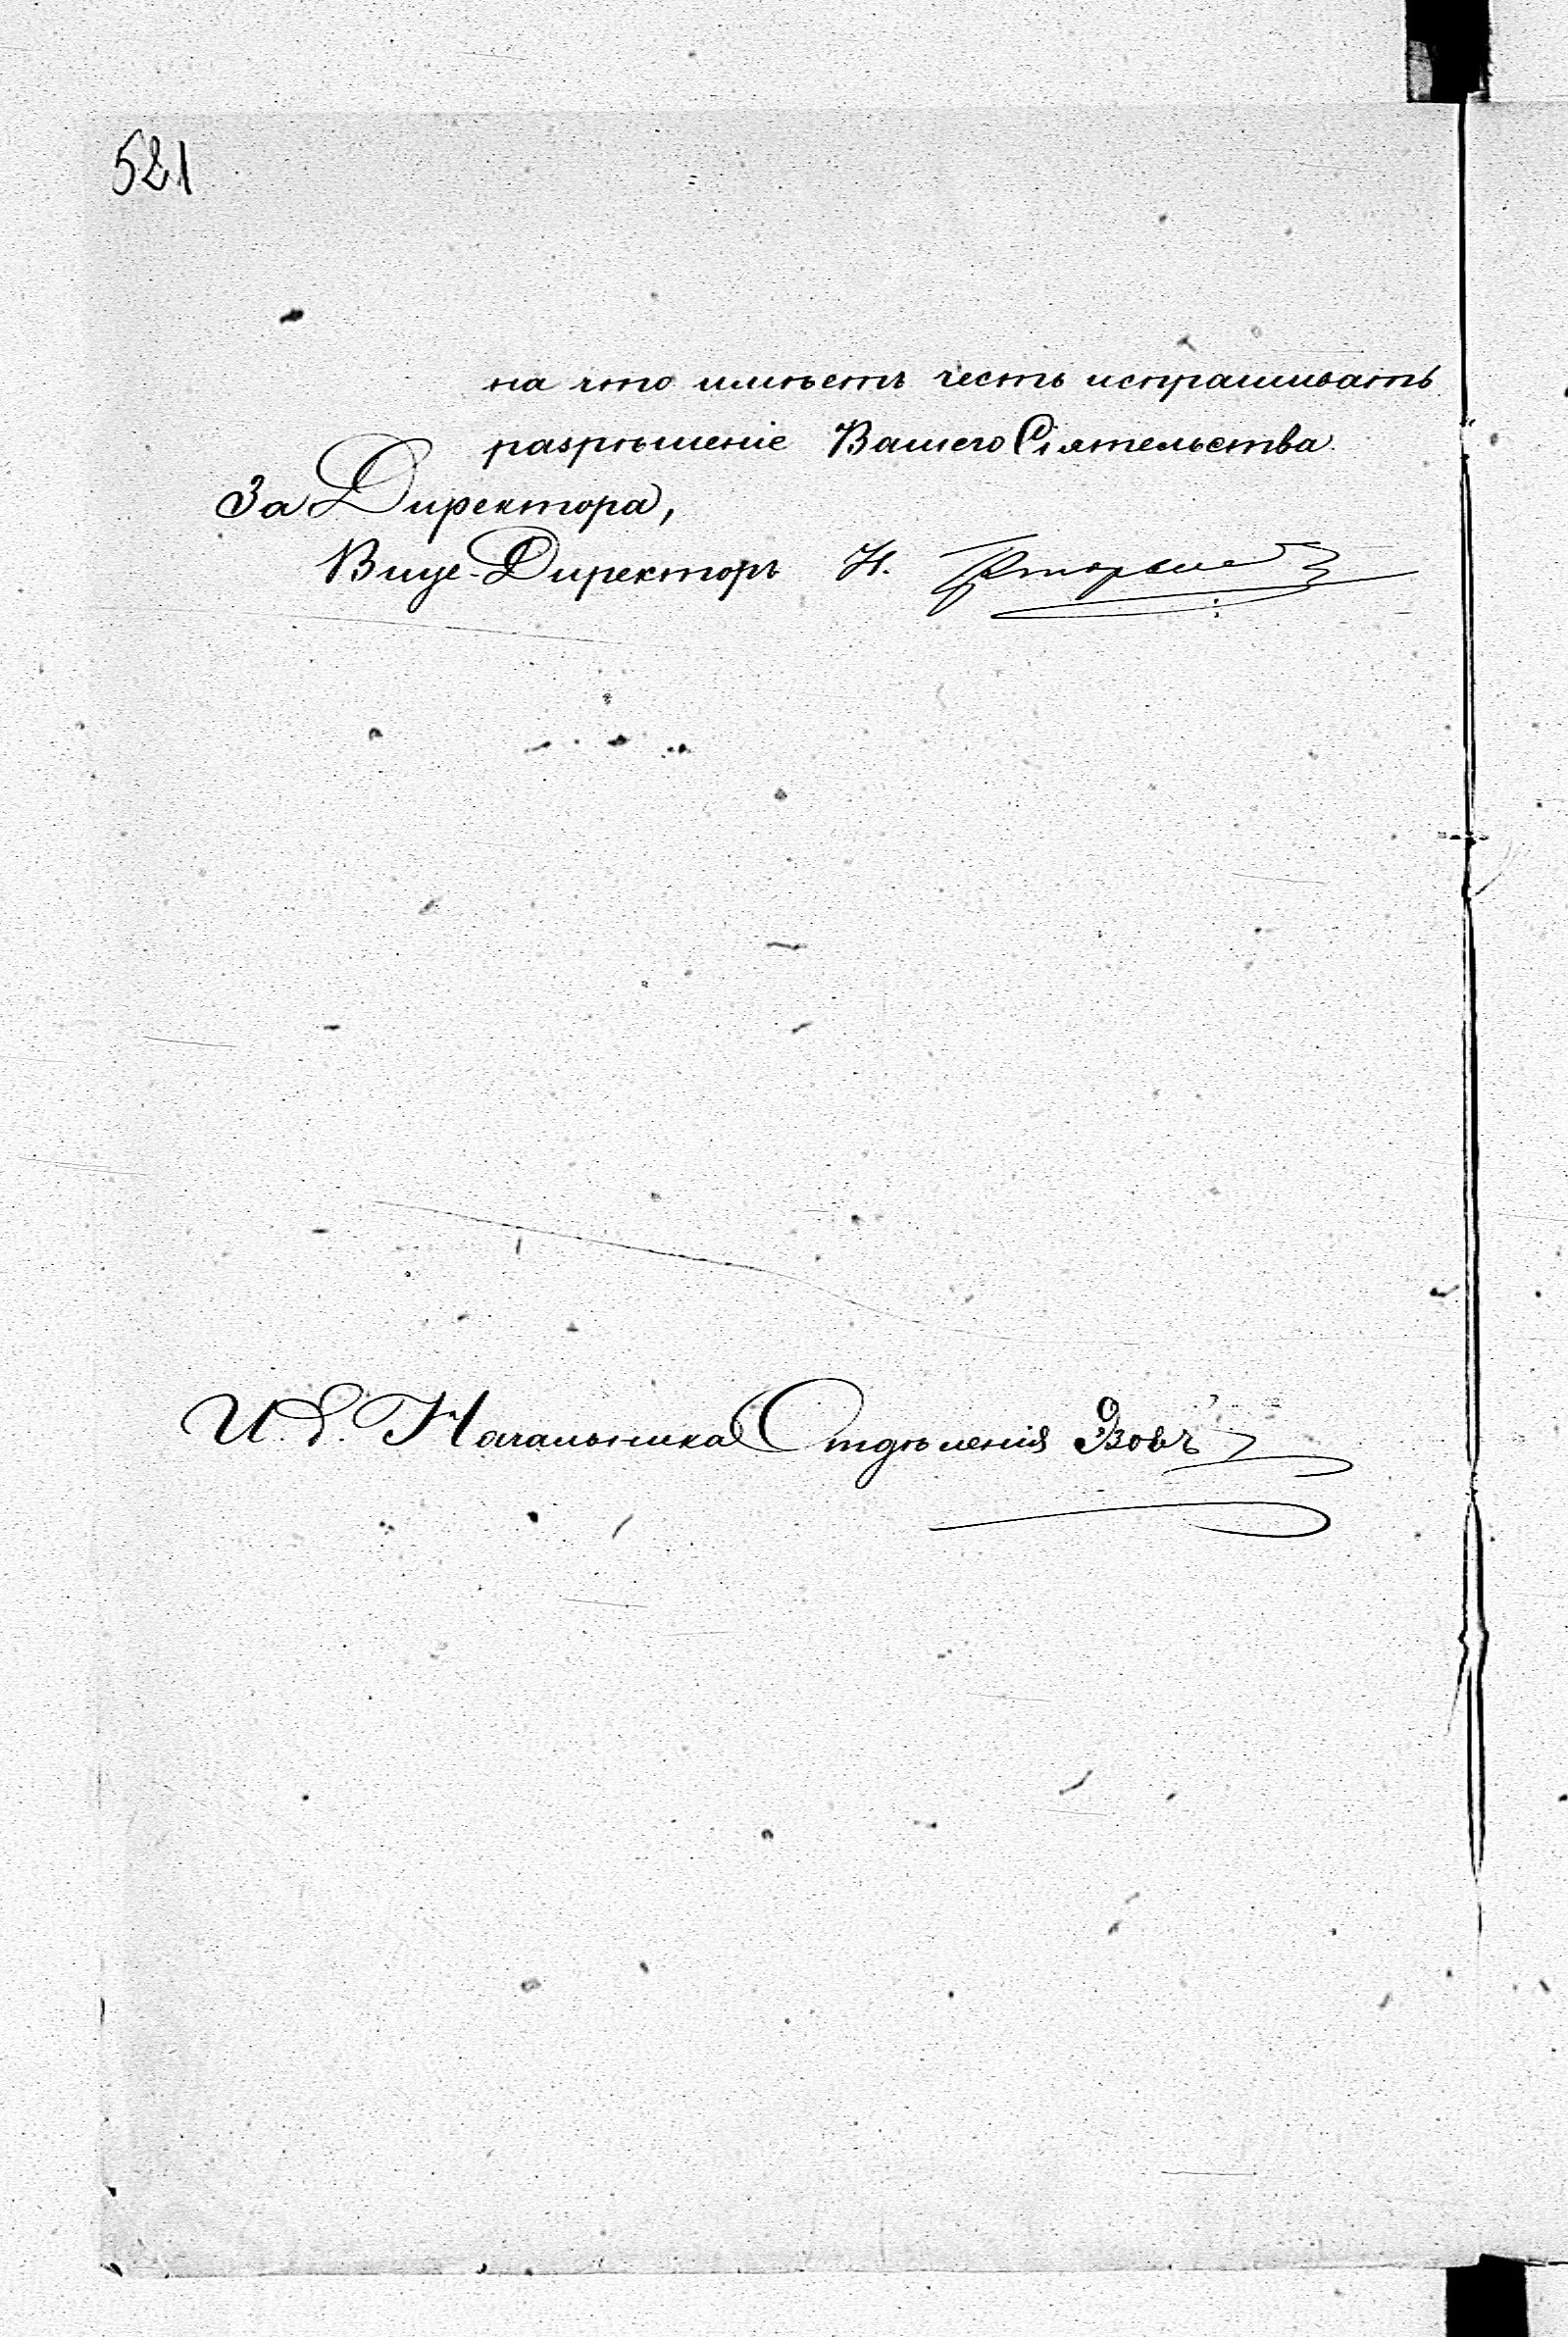 521
на что имѣетъ честь испрашивать
разрѣшеніе Вашего Сіятельства.
За Директора,
Вице-Директоръ Н.
И. д. Начальника Отдѣленія